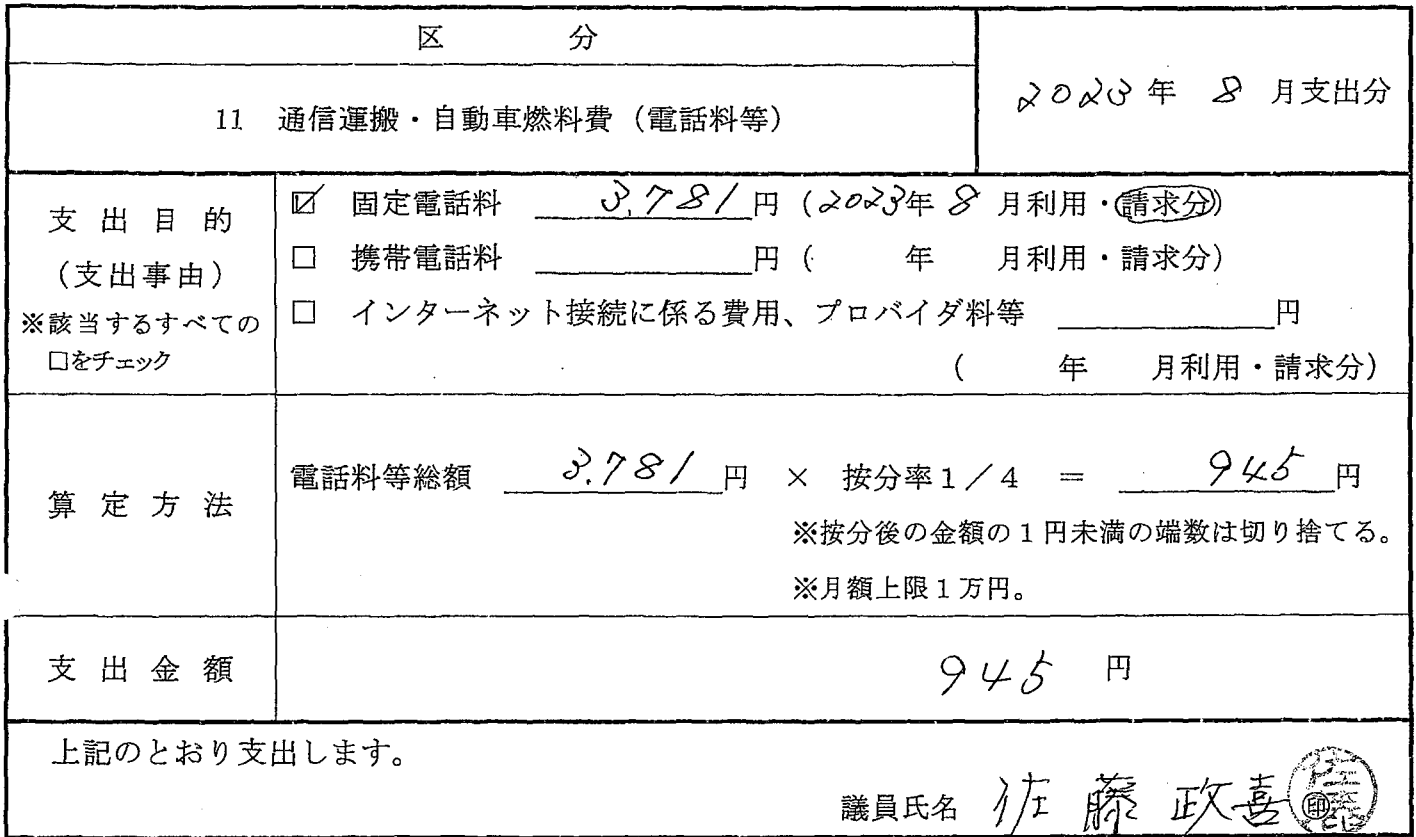 区　　　分
11　通信運搬・自動車燃料費（電話料等）
2023年 8 月支出分
支 出 目 的
（支出事由）
※該当するすべての
□をチェック
☑　固定電話料　3,781円（2023年 8 月利用・請求分）
□　携帯電話料　＿＿＿＿円（　　年　　月利用・請求分）
□　インターネット接続に係る費用、プロバイダ料等　＿＿＿＿円
（　　年　　月利用・請求分）
算 定 方 法
電話料等総額　3,781円　×　按分率１／４　＝　945円
※按分後の金額の１円未満の端数は切り捨てる。
※月額上限１万円。
支 出 金 額
945　円
上記のとおり支出します。
議員氏名　佐藤 政喜 佐藤 印